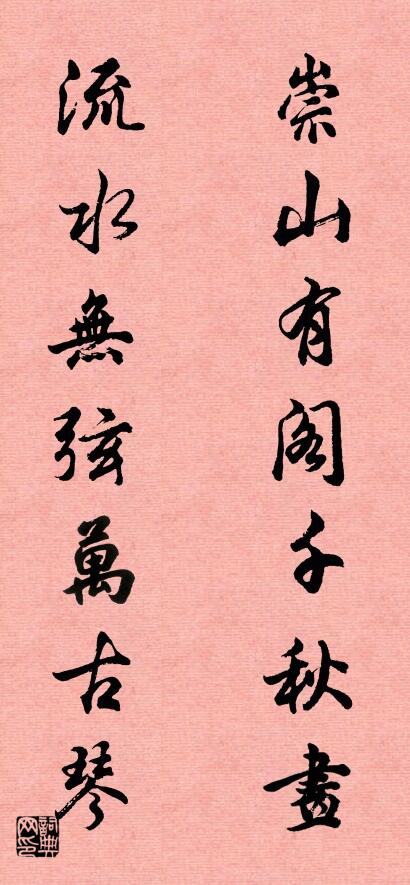 崇山有阁千秋畫
流水無弦萬古琴
詞典网印